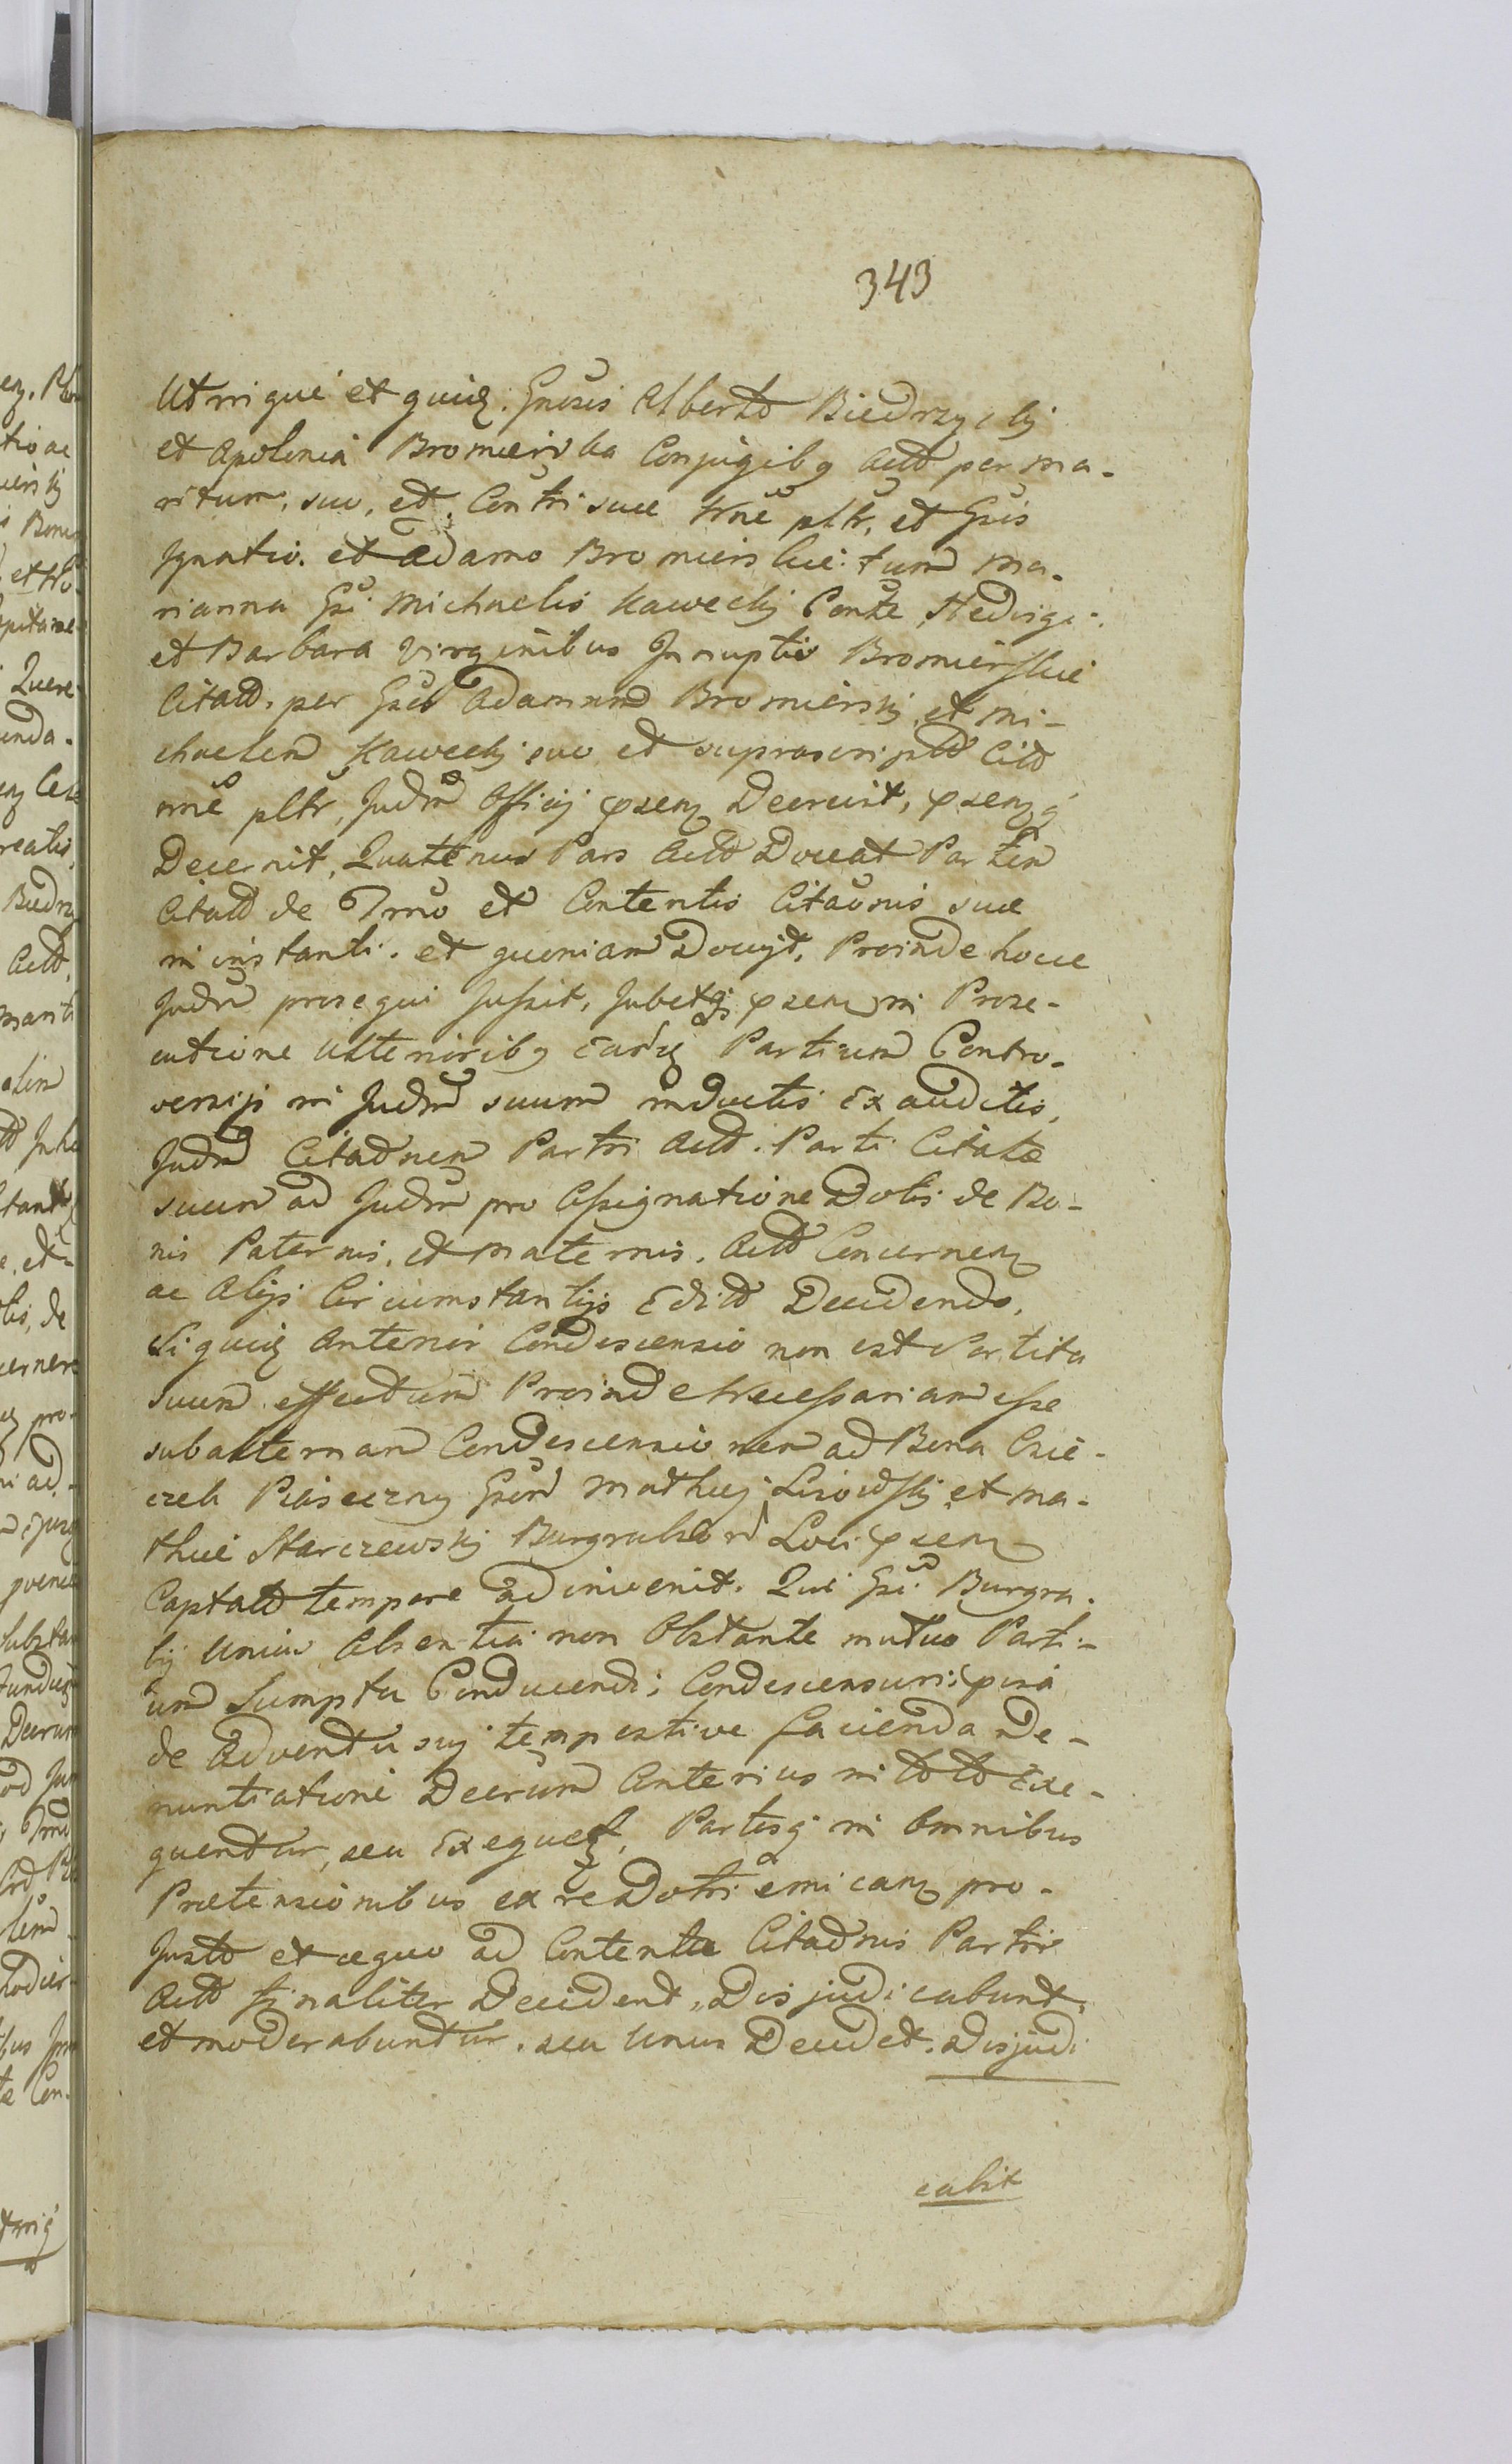 343
Utrique et quidẽ. Gnõsis Alberto Biedrzycki
et Apolonia Bromierska Conjugibg Actõ per ma-
ritum, suo, et, Contri suæ nõie pltr, et Gsis
Ignatio. et Adamo Bromierskie: tum Ma-
rianna Gsi Michaelis Kawecki Conte, Hedviga.
et Barbara Virginibus Innuptis Bromierskie
Citatõ. per Gsõs Adamum Bromierski, et Mi-
chaelem Kawecki suo et suprascriptõ Citõ
nõie pltr, Judm Officij pseñ Decrevit, pseñq
Decernit, Quatenus Pars Actõ Doceat Partem
Citatõ de Trno et Contentis Citaõnis suæ
in instanti. et quoniam Docuit, Proinde hocce
Judm prosequi Jussit, Jubetq pseñ in Prose-
cutione Ulterioribg Eardẽ Partium Contro-
versijs in Judm suum inductis Exauditis,
Judm Citaõnem Partis Actõ. Parti Citatæ
suum ad Judm pro Assignatione Dotis de Bo-
nis Paternis, et Maternis. Actõ Concerneñ
ac Alijs Circumstantijs Editõ Decidendo,
Si quidẽ Anterior Condescensio non est Sortita
suum effectum Proinde Necessariam esse
subalternam Condescensionem ad Bona Osie-
czek Piaseczny Gsor Mathei Lisowski, et Ma-
thie Starczewski Burgrabior Loci pseñ
Captatõ tempore adinvenit. Qui Gsi. Burgra-
bij Unius Absentia non Obstante mutuo Parti-
um Sumptu Conducendi; Condescensuri; pvia
de Adventu suj tempestive facienda De-
nuntiatione Decrum Anterius in toto Exe-
quentur, seu Exequet, Partesq in Omnibus
Prætensionibus ex re Dotis emicañ pro-
Justo et æquo ad Contenta Citaõnis Partis
Actõ finaliter Decident, Disjudicabunt,
et moderabuntur. seu Unus Decidet. Disjudi
cabit